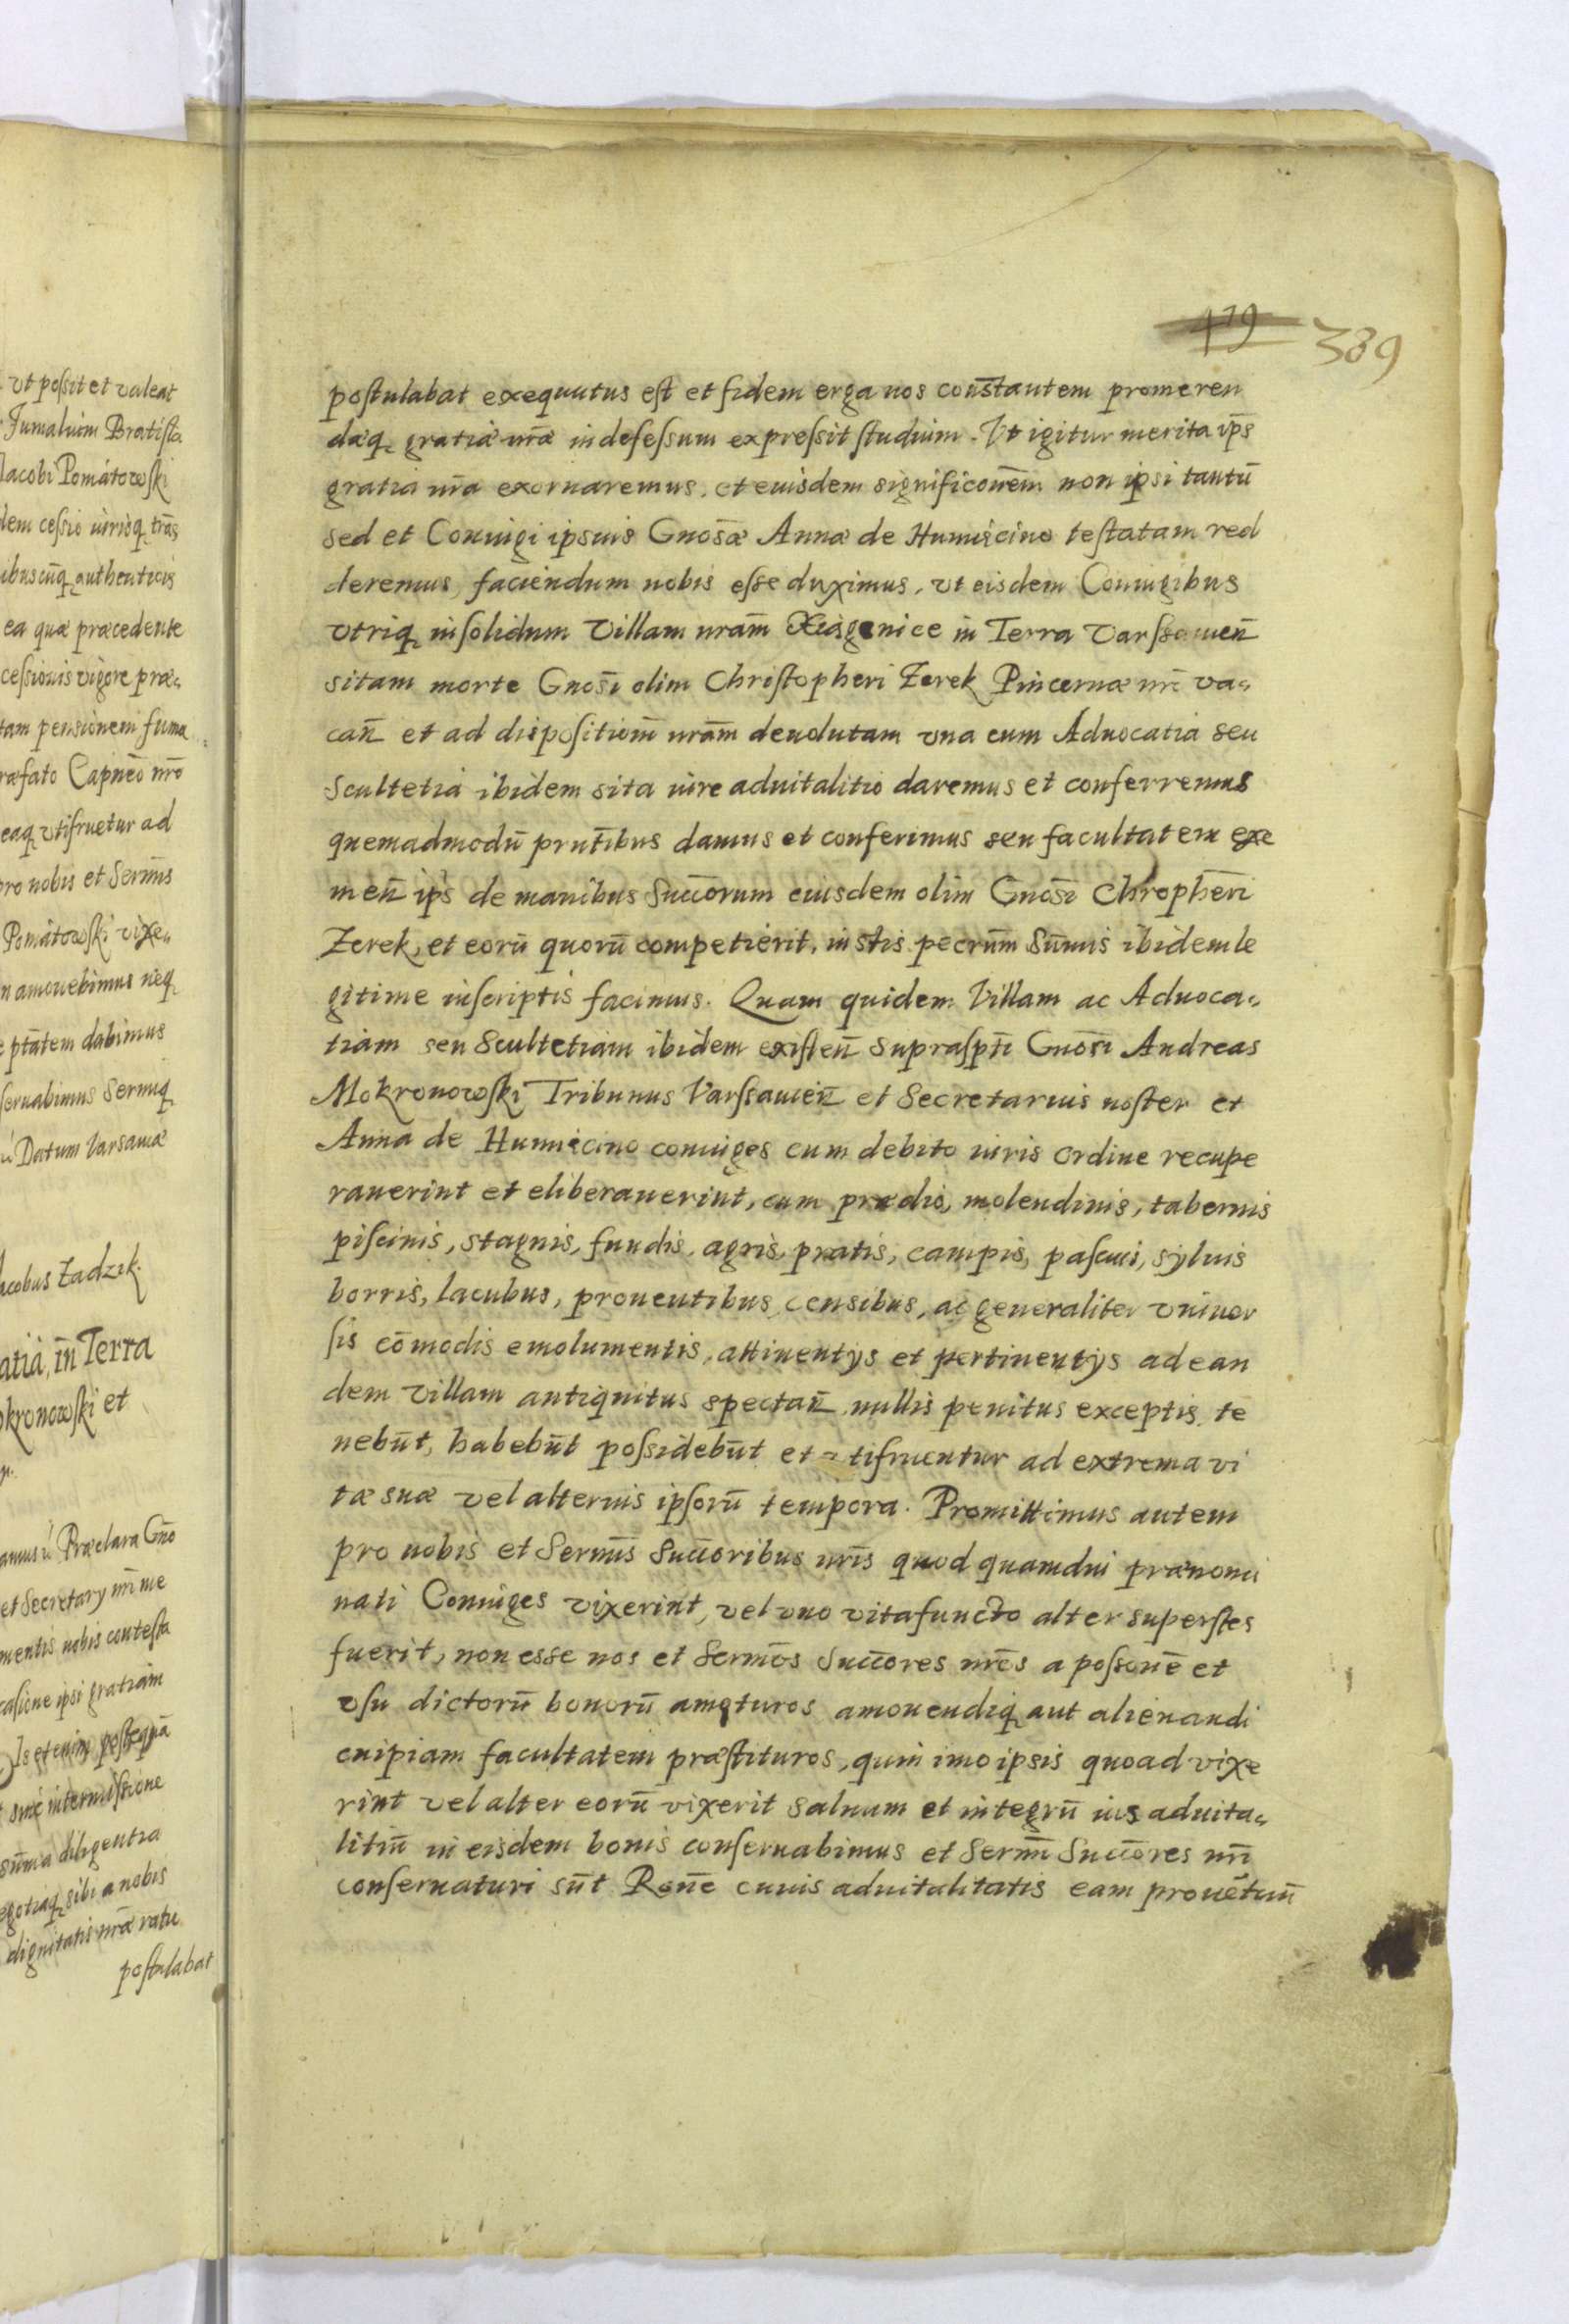 ut possit et valeat
Fumalium Bratista
Iacobi Pomátowski
dem cessio iurisq₃ trās
ibuscūq₃ authenticis
ea quæ præcedente
cessionis vigore præ=
tam pensionem fuma
ræfato Capneo nrō
eaq₃ utifruetur ad
pro nobis et Sermīs
Pomátowski vixe=
n amovebimus neq₃
ptātem dabimus
servabimus Sermiq₃
Datum Varsaviæ
Iacobus Zadzik.
atiâ, in Terra
okronowski et
amus Præclara Gnō
et Secretary nrī me
mentis nobis contesta
casione ipsi gratiam
Is etenim postequā
sine intermissione
sūma diligentia
egotiaq₃ sibi a nobis
dignitatis nrǣ ratu
postulabat
419 389
postulabat exequutus est et fidem erga nos constantem promeren
dæq₃ gratiæ nrǣ indefessum expressit studium. Ut igitur merita ips̄
gratia nrā exornaremus, et euisdem significonēm non ipsi tantū
sed et Coniugi ipsius Gnosǣ Annæ de Humiecino testatam red
deremus, faciendum nobis esse duximus, ut eisdem Coniugibus
utriq₃ insolidum Villam nrām Xiągenice in Terra Varssavien̄
sitam morte Gnosī olim Christopheri Zerek Pincernæ nrī va=
can̄ et ad dispositionm̄ nrām devolutam una cum Advocatia seu
Scultetia ibidem sita iure advitalitio daremus et conferremus
quemadmodū prntībus damus et conferimus seu facultatem exe
men̄ ips̄ de manibus Succorum eiusdem olim Gnosī Chrophēri
Zerek, et eorū quorū competierit, in stis pecrūm Sūmis ibidem le
gitime inscriptis facimus. Quam quidem Villam ac Advoca=
tiam seu Scultetiam ibidem existen̄ supraspti Gnosī Andreas
Mokronowski Tribunus Varssavien̄ et Secretarius noster et
Anna de Humiecino coniuges cum debito iuris ordine recupe
raverint et eliberaverint, cum prædio, molendinis, tabernis
piscinis, stagnis, fundis, agris, pratis, campis, pascuis, sylvis
borris, lacubus, proventibus, censibus, ac generaliter univer
sis cōmodis emolumentis, attinentys et pertinentys ad ean
dem villam antiquitus spectan̄ nullis penitus exceptis te
nebūt, habebūt possidebūt et utifruentur ad extrema vi
tæ suæ vel alterius ipsorū tempora. Promittimus autem
pro nobis et Sermīs Succoribus nrīs quod quamdiu prænomi
nati Coniuges vixerint, vel uno vita functo alter superstes
fuerit, non esse nos et Sermōs Succores nrōs a possonē et
usu dictorū bonorū amoturos amovendiq₃ aut alienandi
cuipiam facultatem præstituros, quin imo ipsis quoad vixe
rint vel alter eorū vixerit salvum et integrū ius advita=
litiū in eisdem bonis conservabimus et Sermī Succores nrī
conservaturi sūt. Ronē cuius advitalitatis eam provētuū